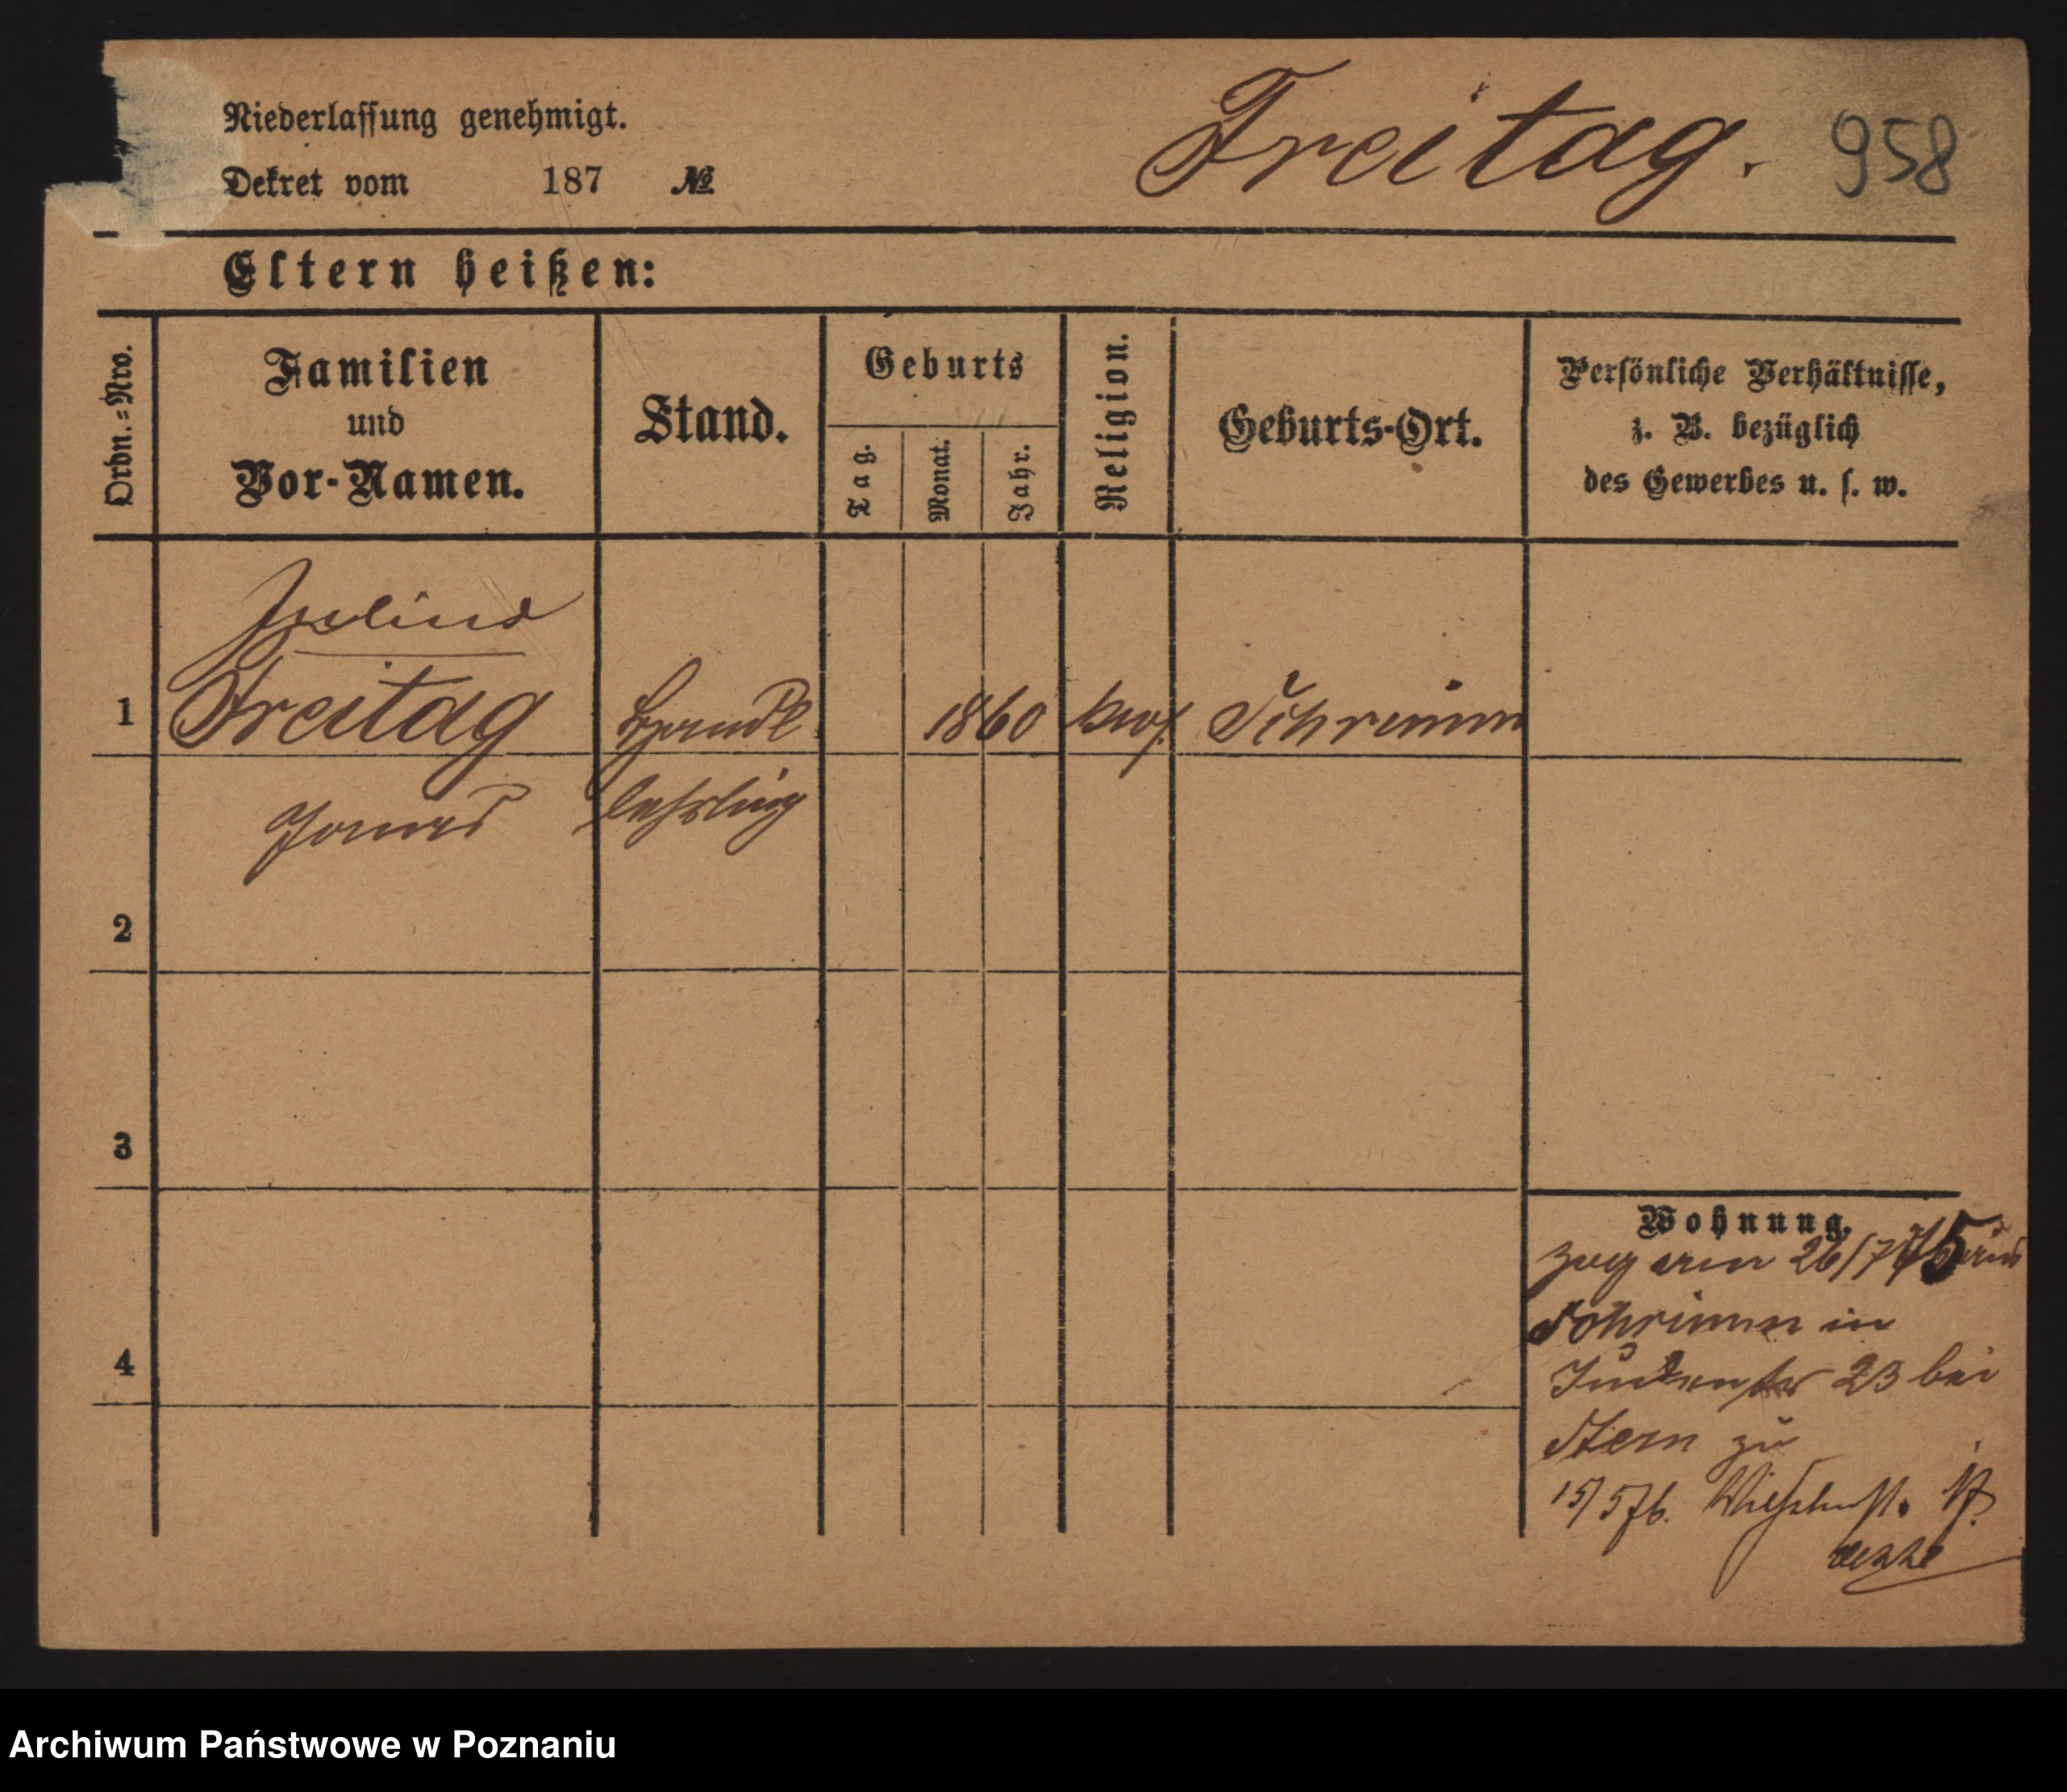 Niederlassung genehmigt.
Dekret vom 187 №
Freitag. 958
Eltern heißen:
Ordn.=Nro.
Familien
und
Vor-Namen.
Stand.
Geburts
Tag.
Monat.
Jahr.
Religion.
Geburts-Ort.
Persönliche Verhältnisse,
z. B. bezüglich
des Gewerbes u. s. w.
Julius
1 Freitag Handl 1860 mos. Schrimm
lehrling
2
3
4
Wohnung.
zug am 26/7 75 aus
Schrimm in
Judenstr 23 bei
Stern zu
15/5 76.